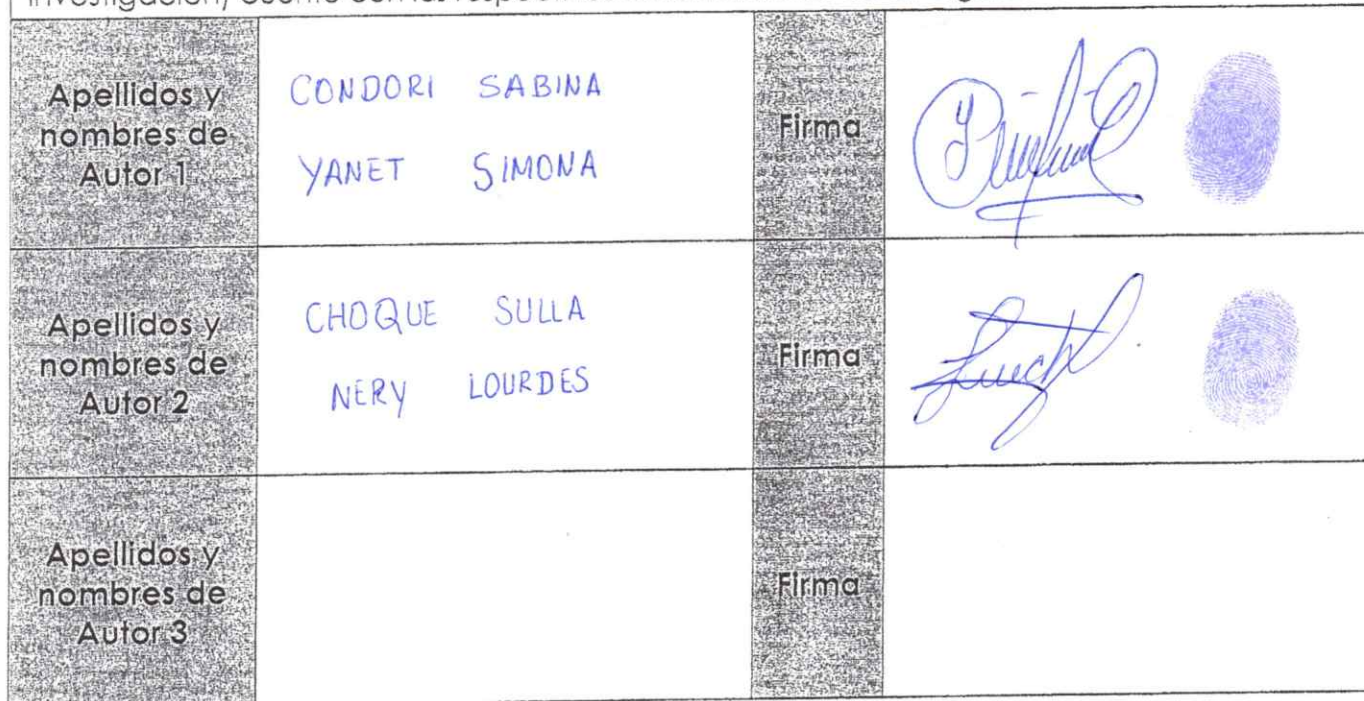 Apellidos y
nombres de
Autor 1
CONDORI SABINA
YANET SIMONA
Firma
Apellidos y
nombres de
Autor 2
CHOQUE SULLA
NERY LOURDES
Firma
Apellidos y
nombres de
Autor 3
Firma